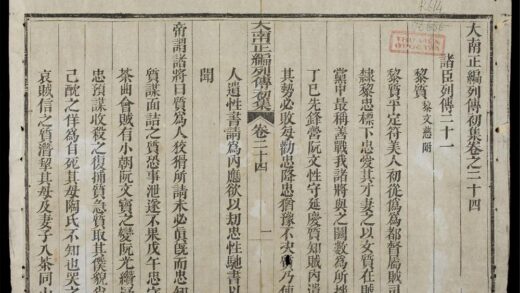 大南正編列傳初集卷之二十四
諸臣列傳二十一
黎質
黎質平定符美人初從僞為都督屬賊司
隸黎忠標下忠愛其才妻之以女質在賊
黨中最稱善戰我諸將與之鬭數為所挫
丁巳先鋒營阮文性守延慶質知賊內潰
其勢必敗每勸忠降忠猶豫不決質乃使
大南正編列傳初集 卷二十四 一
人遺性書請為內應欲以刼忠性馳書以
聞
帝謂諸將曰質為人狡猾所請未必眞旣而忠
質謀面詰之質恐事泄遂不果戊午忠守
茶曲會賊有小朝阮文寶之變阮光纘
忠預謀收殺之復捕質急質取其僕貌肖
己酖之佯為自死其母陶氏不知也哭之
哀賊信之質潛挈其母及妻子入茶同山